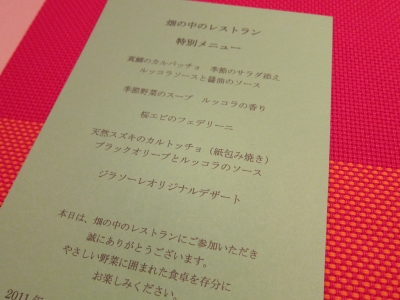 畑の中のレストラン
特別メニュー
真鯛のカルパッチョ　季節のサラダ添え
ルッコラソースと醤油のソース
季節野菜のスープ　ルッコラの香り
桜エビのフェデリーニ
天然スズキのカルトッチョ（紙包み焼き）
ブラックオリーブとルッコラのソース
ジラソーレオリジナルデザート
本日は、畑の中のレストランにご参加いただき
誠にありがとうございます。
やさしい野菜に囲まれた食卓を存分に
お楽しみください。
2011年